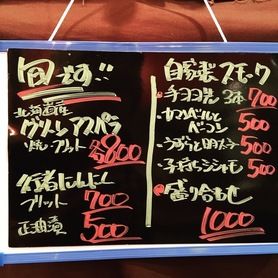 旬です!!
北海道産
グリーンアスパラ
焼 フリット 各800
行者にんにく
フリット 700
正油漬 500
自家製スモーク
・手羽先 3本 700
ベーコン 500
・うずらと 500
・子持ちシシャモ 500
・盛り合わせ
1000